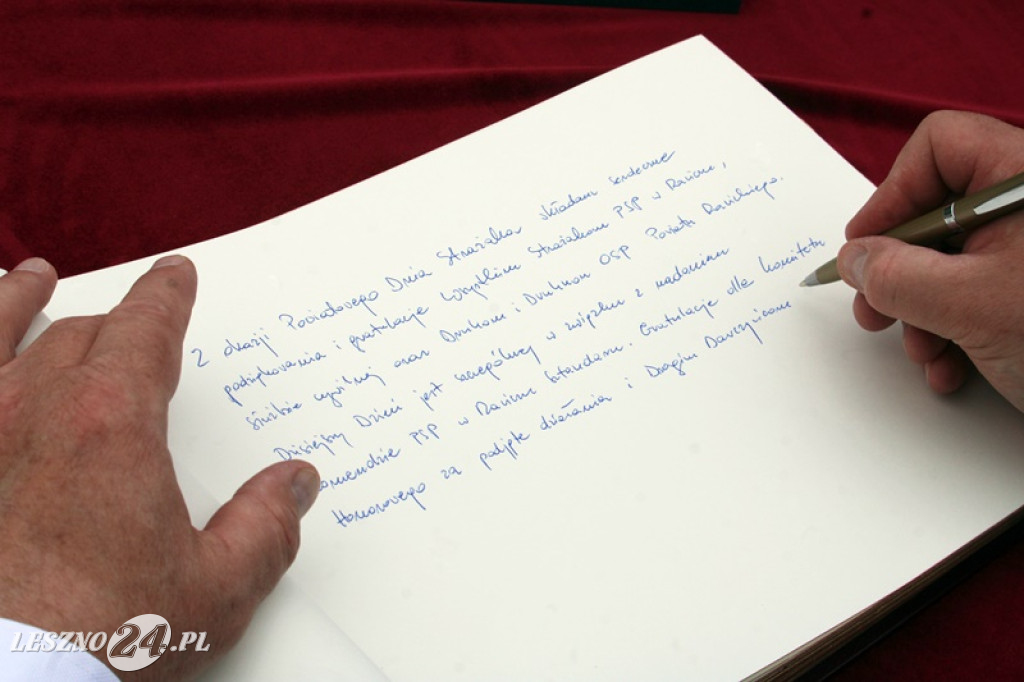 Z okazji Powiatowego Dnia Strażaka składam serdeczne
podziękowania i gratulacje wszystkim Strażakom PSP w Rawiczu,
służbie cywilnej oraz Druhom i Druhnom OSP Powiatu Rawickiego.
Dzisiejszy Dzień jest szczególny w związku z nadaniem
Komendzie PSP w Rawiczu sztandaru. Gratulacje dla komitetu
Honorowego za podjęte działania i Drogim Darczyńcom
LESZNO24.PL